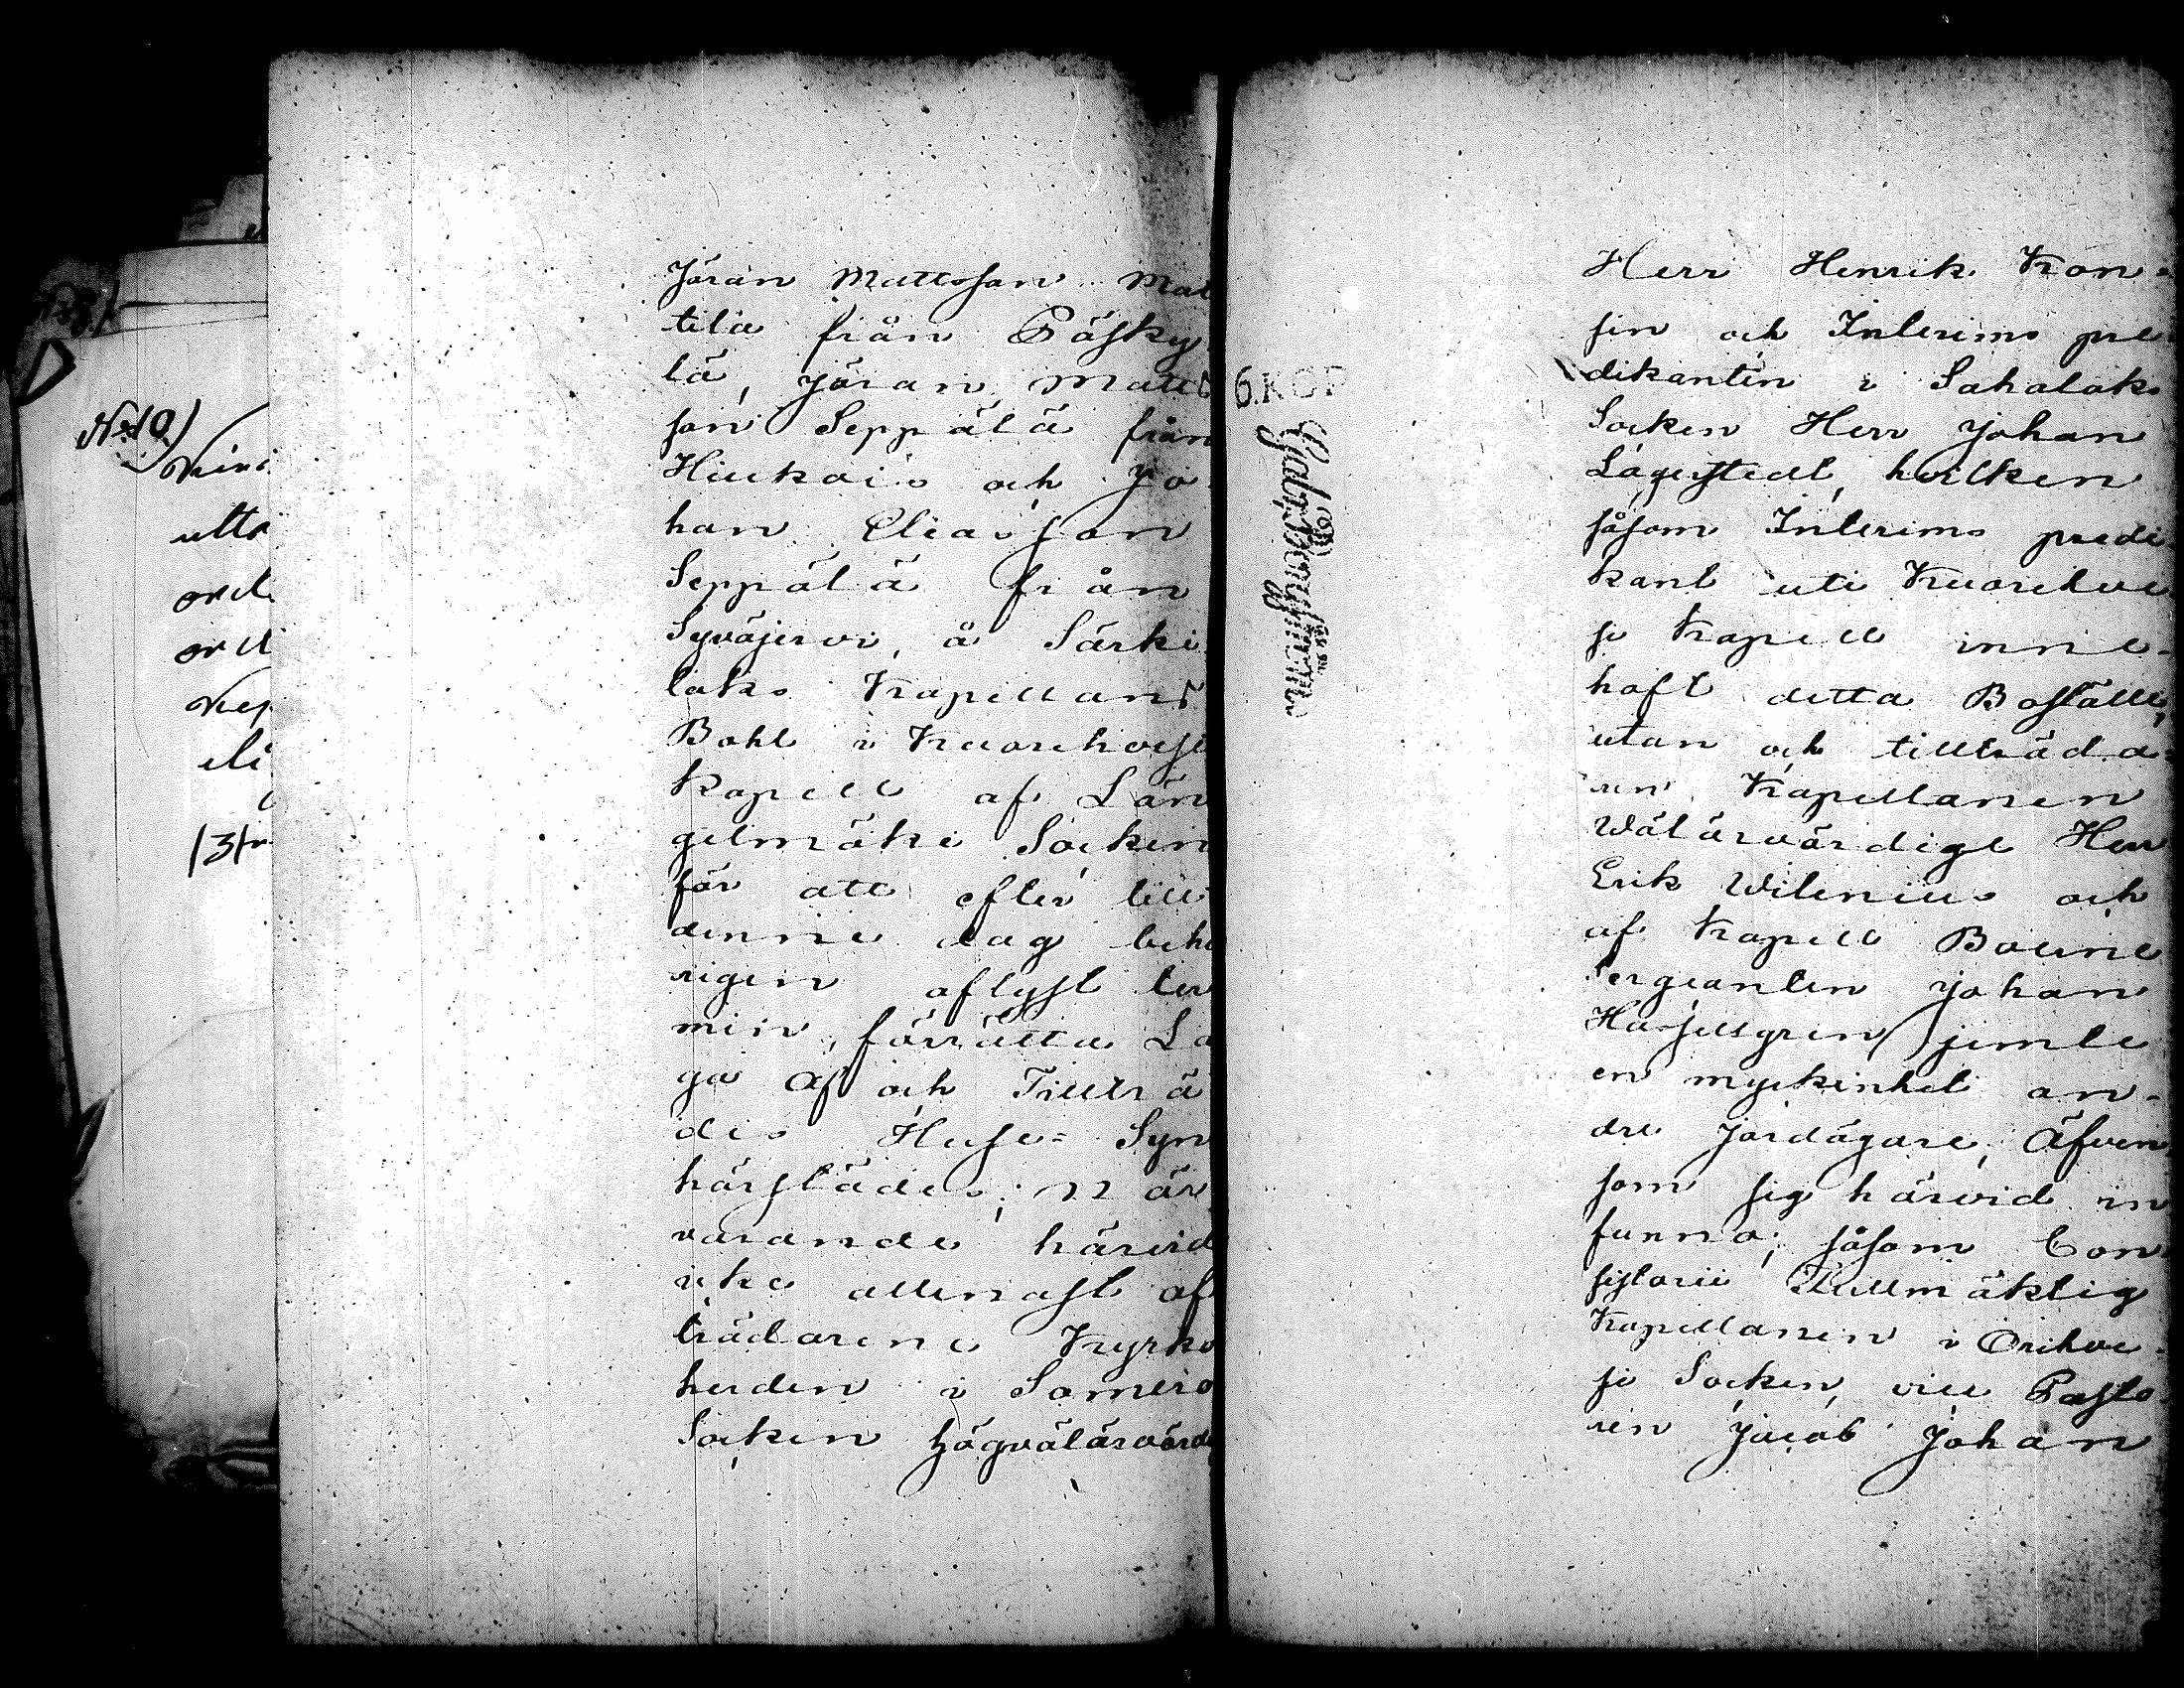 N:10)
utta
13tn
Jöran Mattsson Mat
tila från Päsky
lä, Jöran Matts
son Seppälä från
Hiukais och Jo
han Eliasson
Seppälä från
Syväjervi, å Särki
laks Kapellans
Bohl i Kuorehvesi
Kapell af Län
gelmäki Socken
för att efter till
denne dag behö
rigen aflyst ter
min, förrätta La
ga Af och Tillträ
des Huse= Syn
härstädes; När
varande härvid
icke allenast af
trädarene Kyrko
herden i Somero
Socken högvälärvörd
6.KGF
Herr Henrik Kon-
sin och Interims pre
dikanten i Sahalaks
Socken Herr Johan
Lagerstedt, hvilken
såsom Interims predi
kant uti Kuorehve
si Kapell inne-
haft detta Boställe,
utan och tillträda=
ren Kapellanen
Wälärvördige Herr
Erik Wilenius och
af Kapell Boerne
Sergeanten Johan
Hasselgren jemte
en myckenhet an-
dre Jordägare, Äfven
som sig härvid in
funno; såsom Con
sistorii Fullmäktig
Kapellanen i Orihve-
si Socken, vice Pasto
ren Jacob Johan